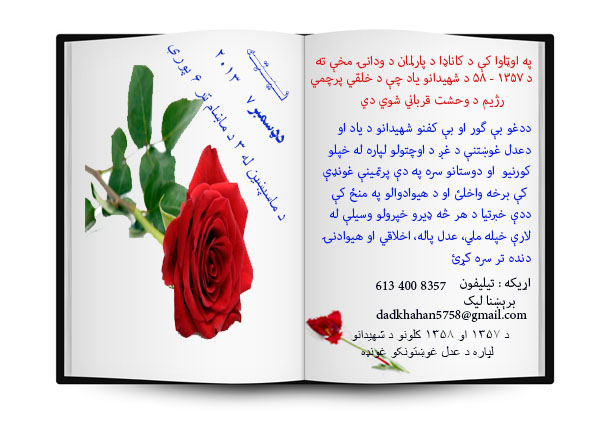 نېټه
د دسمبر ۷ ۲۰۱۳
د ماسپښين له ۳ د ماښام تر ۶ پورې
په اوټاوا کې د کاناډا د پارلمان د ودانۍ مخې ته
د ۱۳۵۷ - ۵۸ د شهیدانو یاد چې د خلقي پرچمي
رژیم د وحشت قرباني شوي دي
ددغو بې گور او بې کفنو شهیدانو د یاد او
دعدل غوښتنې د غږ د اوچتولو لپاره له خپلو
کورنیو او دوستانو سره په دې پرتمینې غونډې
کې برخه واخلئ او د هیوادوالو په منځ کې
ددې خبرتیا د هر څه ډیرو خپرولو وسیلې له
لارې خپله ملي، عدل پاله، اخلاقي او هیوادنۍ
دنده تر سره کړئ
اړیکه : تیلیفون 613 400 8357
برېښنا لیک
dadkhahan5758@gmail.com
د ۱۳۵۷ او ۱۳۵۸ کلونو د شهیدانو
لپاره د عدل غوښتونکو غونډه